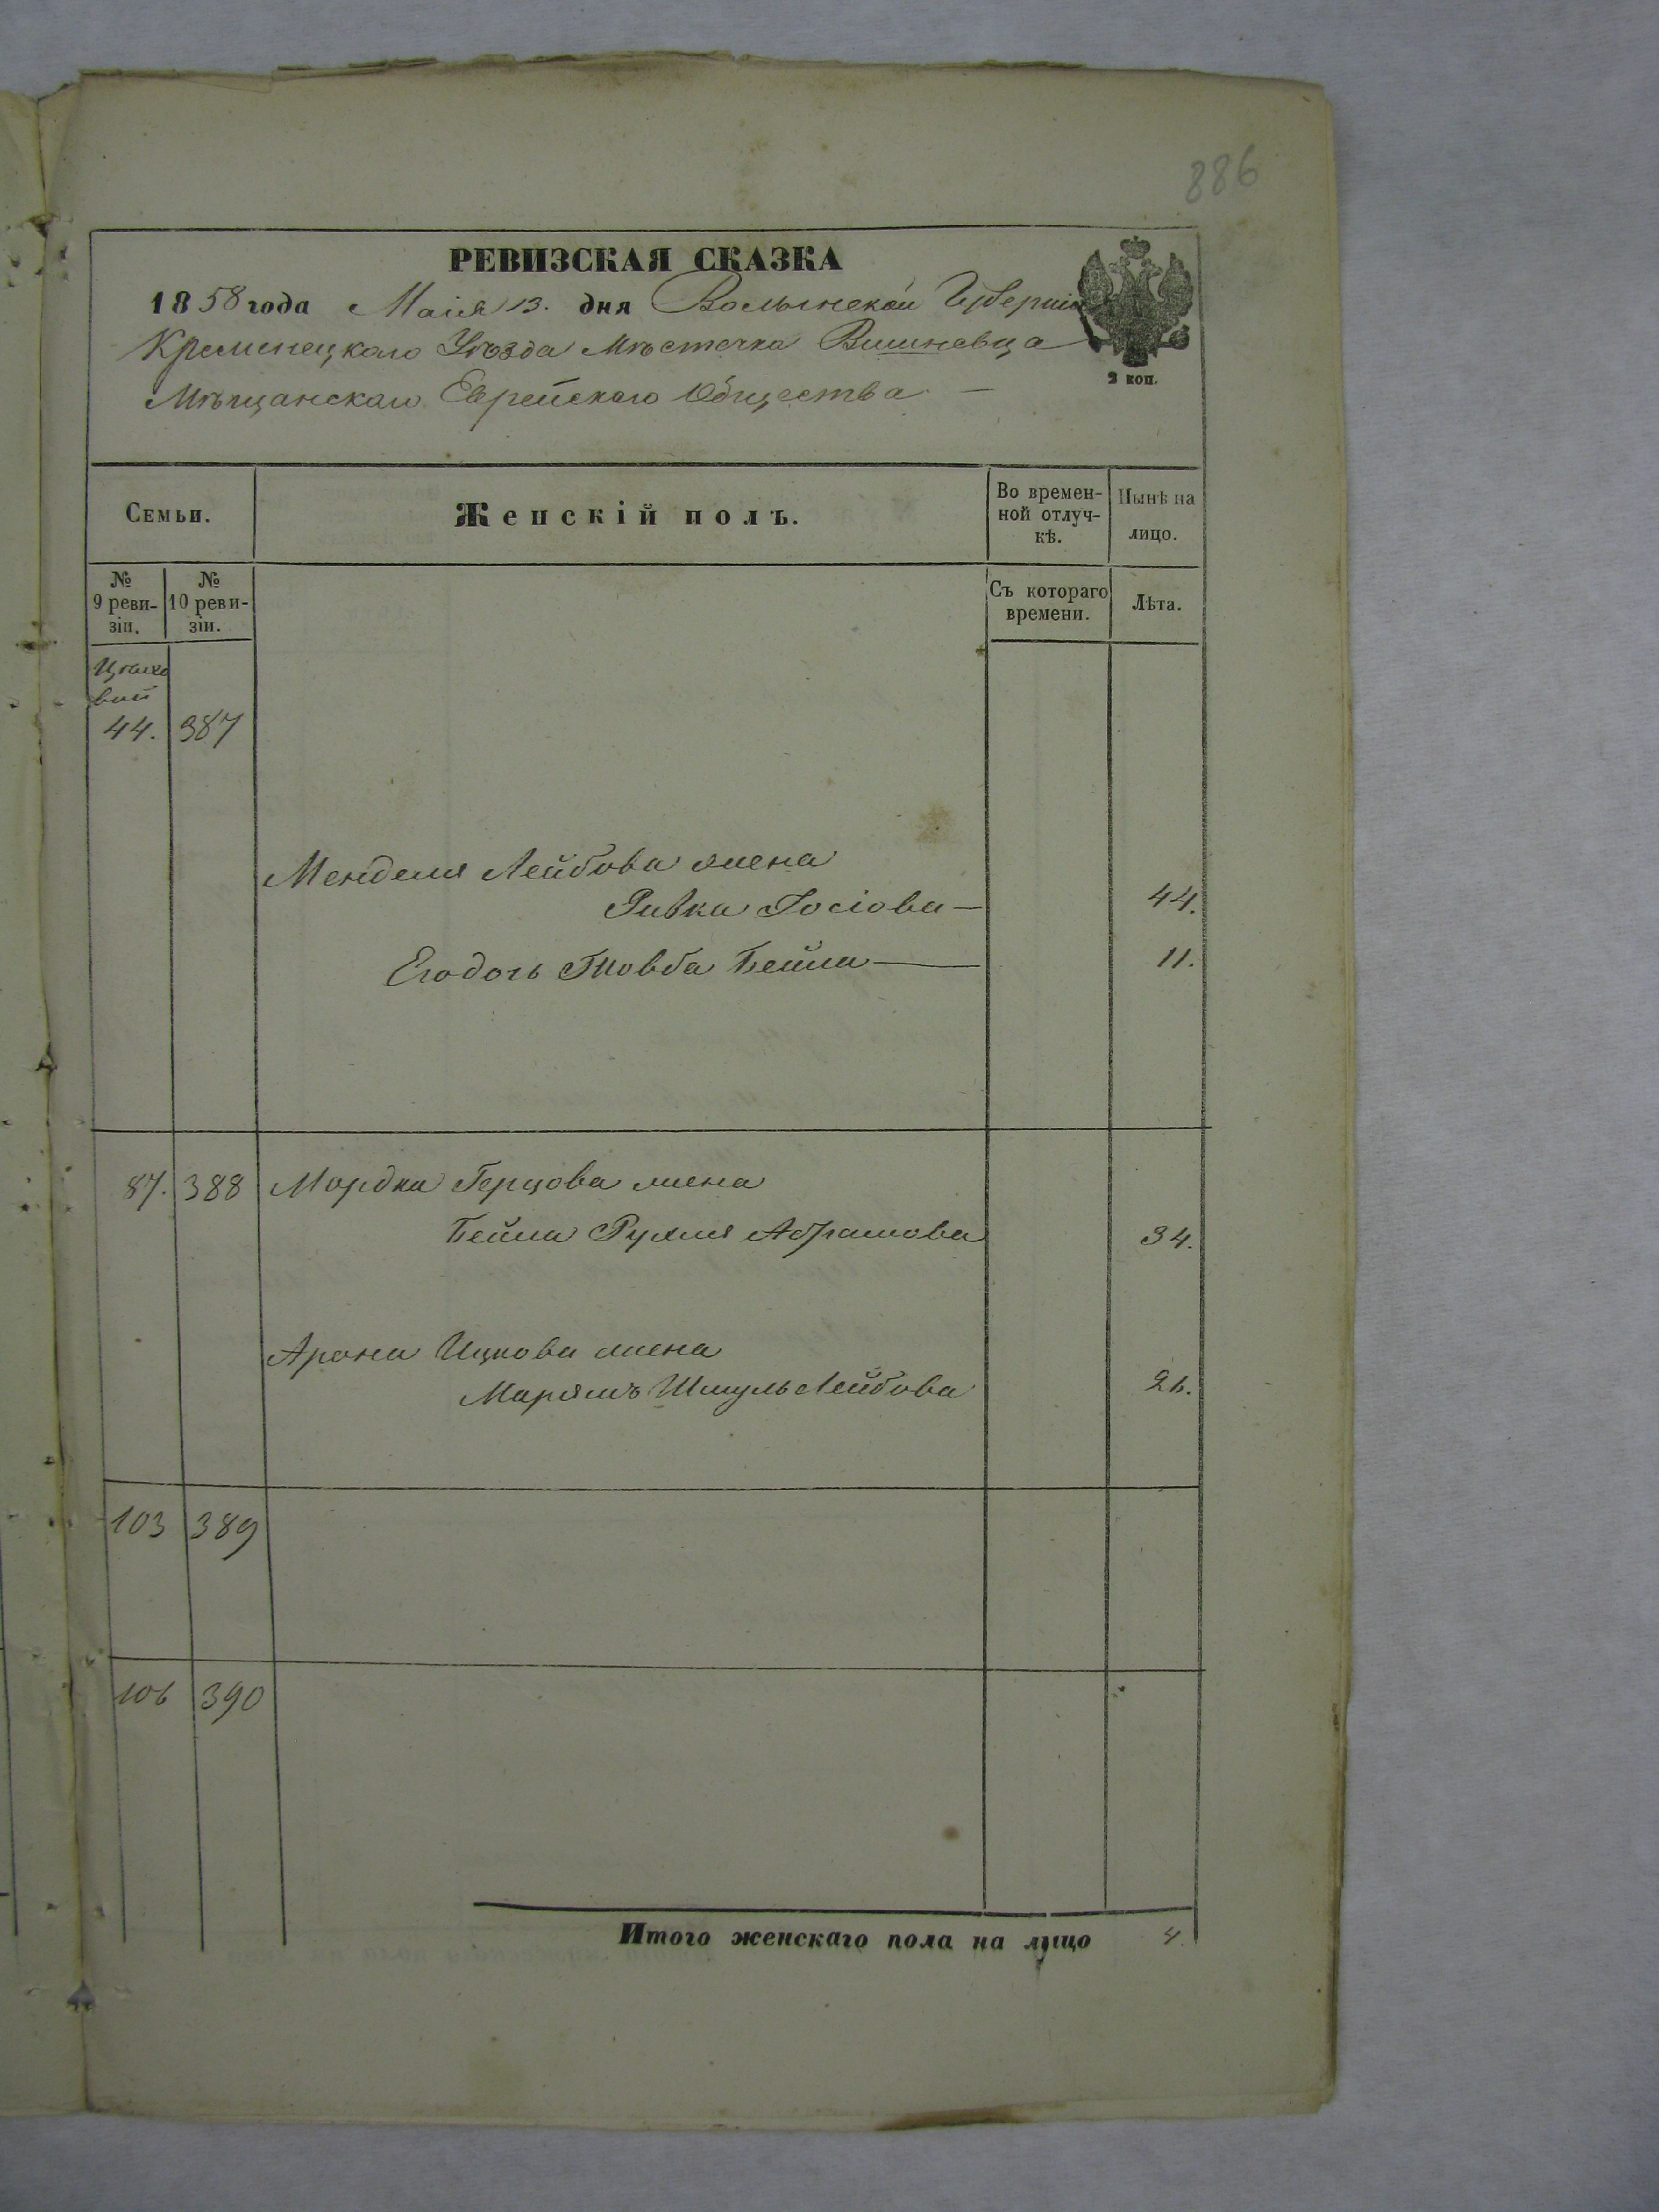 886
РЕВИЗСКАЯ СКАЗКА
1858 года Маія 13. дня Волынской Губерніи
Кременецкаго Уѣзда Мѣстечка Вишневца
Мѣщанскаго Еврейскаго Общества —
2 коп.
Семьи.
Женскій полъ.
Во времен-
ной отлуч-
кѣ.
Нынѣ на
лицо.
№
9 реви-
зіи.
№
10 реви-
зіи.
Съ котораго
времени.
Лѣта.
44. 387
Менделя Лейбова жена
Ривка Іосіова — 44.
Его дочь Товба Бейла — 11.
87. 388 Мордка Герцова жена
Бейла Рухля Абрамова 34.
Арона Ицкова жена
Марямъ Шмуль Лейбова 26.
103 389
106 390
Итого женскаго пола на лицо 4